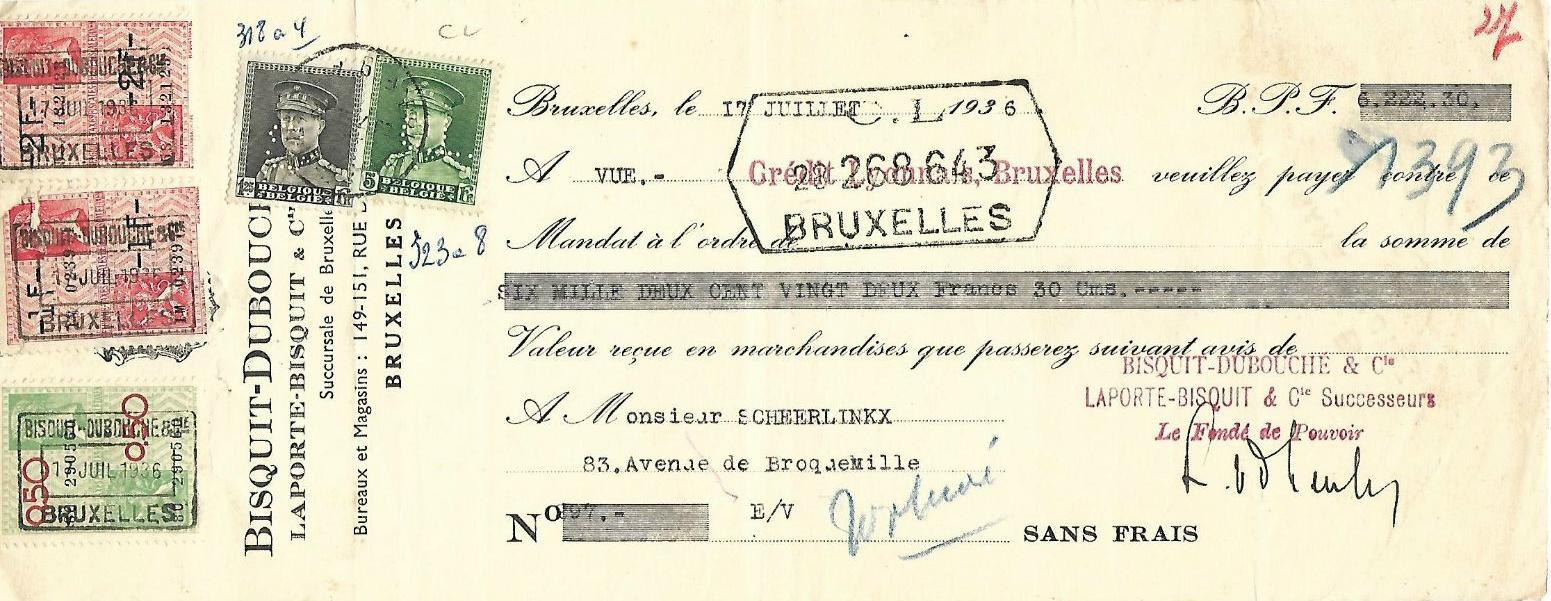 318 a 4
CL
27
2F-
BISQUIT-DUBOUCHÉ & Cie
17 JUIL 1936
BRUXELLES
1F-
BISQUIT-DUBOUCHÉ & Cie
17 JUIL 1936
BRUXELLES
0,50
BISQUIT-DUBOUCHÉ & Cie
17 JUIL 1936
BRUXELLES
290560
BELGIQUE
BELGIË
5 BELGIQUE Fr
BELGIË
523 a 8
BISQUIT-DUBOUCH
LAPORTE-BISQUIT & Cie
Succursale de Bruxelle
Bureaux et Magasins : 149-151, RUE D
BRUXELLES
Bruxelles, le 17 JUILLET 1936 B.P.F. 6.222.30.
C.L
22 268643
BRUXELLES
A VUE.- Crédit Lyonnais, Bruxelles veuillez payer contre ce
1393
Mandat à l'ordre de la somme de
SIX MILLE DEUX CENT VINGT DEUX Francs 30 Cms.-----
Valeur reçue en marchandises que passerez suivant avis de
BISQUIT-DUBOUCHÉ & Cie
LAPORTE-BISQUIT & Cie Successeurs
Le Fondé de Pouvoir
A Monsieur SCHEERLINKX
83.Avenue de BroqueMille
No 897.- E/V
SANS FRAIS